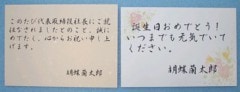 このたび代表取締役社長にご就
任なされましたとのこと、誠に
めでたく、心からお祝い申し上
げます。
胡蝶蘭太郎
誕生日おめでとう!
いつまでも元気でいて
ください。
胡蝶蘭太郎